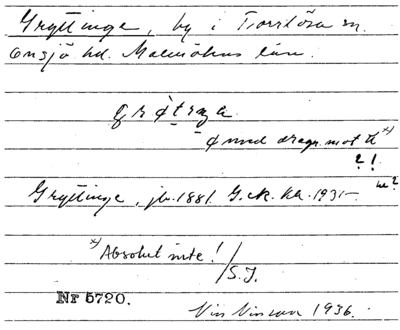 Gryttinge, by i Torrlösa sn.
Onsjö hd. Malmöhus län.
grø̀tıŋa
ø med dragn. mot
? !
Gryttinge, jb. 1881. G.ek. ka. 1931-
x) Absolut inte!
/S.I.
Nr 5720.
1936.